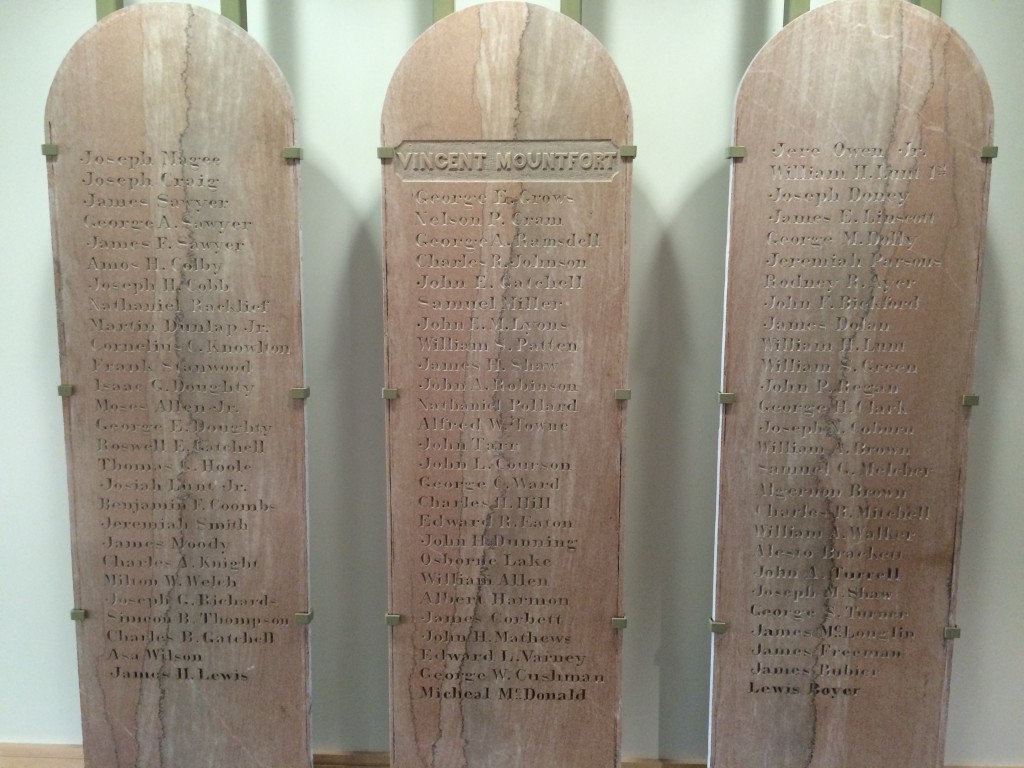 Joseph Magee
Joseph Craig
James Sawyer
George A. Sawyer
James F. Sawyer
Amos H. Colby
Joseph H. Cobb
Nathaniel Backlief
Martin Dunlap Jr.
Cornelius C. Knowlton
Frank Stanwood
Isaac C. Doughty
Moses Allen Jr.
George E. Doughty
Roswell E. Gatchell
Thomas C. Hoole
Josiah Lunt Jr.
Benjamin F. Coombs
Jeremiah Smith
James Moody
Charles A. Knight
Milton W. Welch
Joseph G. Richards
Simeon B. Thompson
Charles B. Gatchell
Asa Wilson
James H. Lewis
VINCENT MOUNTFORT
George E. Grows
Nelson P. Cram
George A. Ramsdell
Charles R. Johnson
John E. Gatchell
Samuel Miller
John E. M. Lyons
William S. Patten
James H. Shaw
John A. Robinson
Nathaniel Pollard
Alfred W. Towne
John Tarr
John L. Courson
George C. Ward
Charles H. Hill
Edward B. Eaton
John H. Dunning
Osborne Lake
William Allen
Albert Harmon
James Corbett
John H. Mathews
Edward L. Varney
George W. Cushman
Micheal McDonald
Jere Owen Jr.
William H. Lunt 1st
Joseph Doney
James E. Linscott
George M. Dolly
Jeremiah Parsons
Rodney R. Ayer
John F. Bickford
James Dolan
William H. Lunt
William S. Green
John P. Began
George H. Clark
Joseph S. Coburn
William A. Brown
Samuel G. Melcher
Algernon Brown
Charles B. Mitchell
William A. Walker
Alesto Bracken
John A. Torrell
Joseph M. Shaw
George S. Torner
James McLonglin
James Freeman
James Bubier
Lewis Boyer